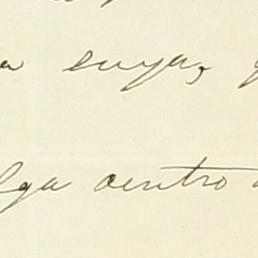 a suya,
lga centro